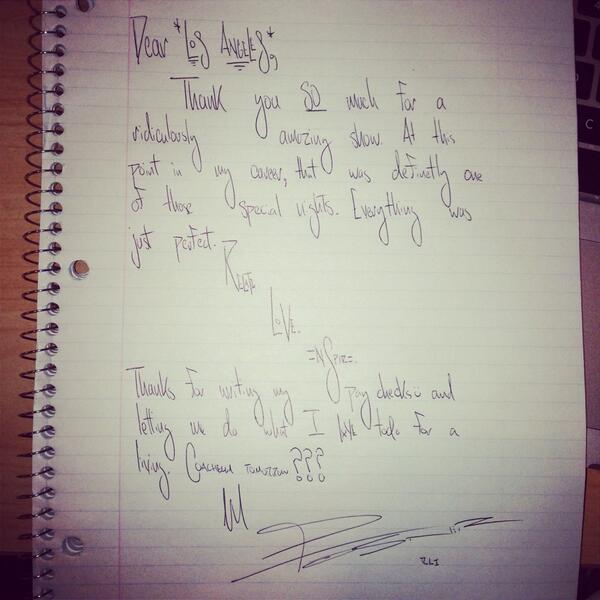 Dear *Los Angeles*,
Thank you SO much for a
ridiculously amazing show. At this
point in my career, that was definetly one
of those special nights. Everything was
just perfect.
Relate
Love.
=nspire.
Thanks for writing my pay checks and
letting me do what I love todo for a
living. Coachella tomorrow???
C